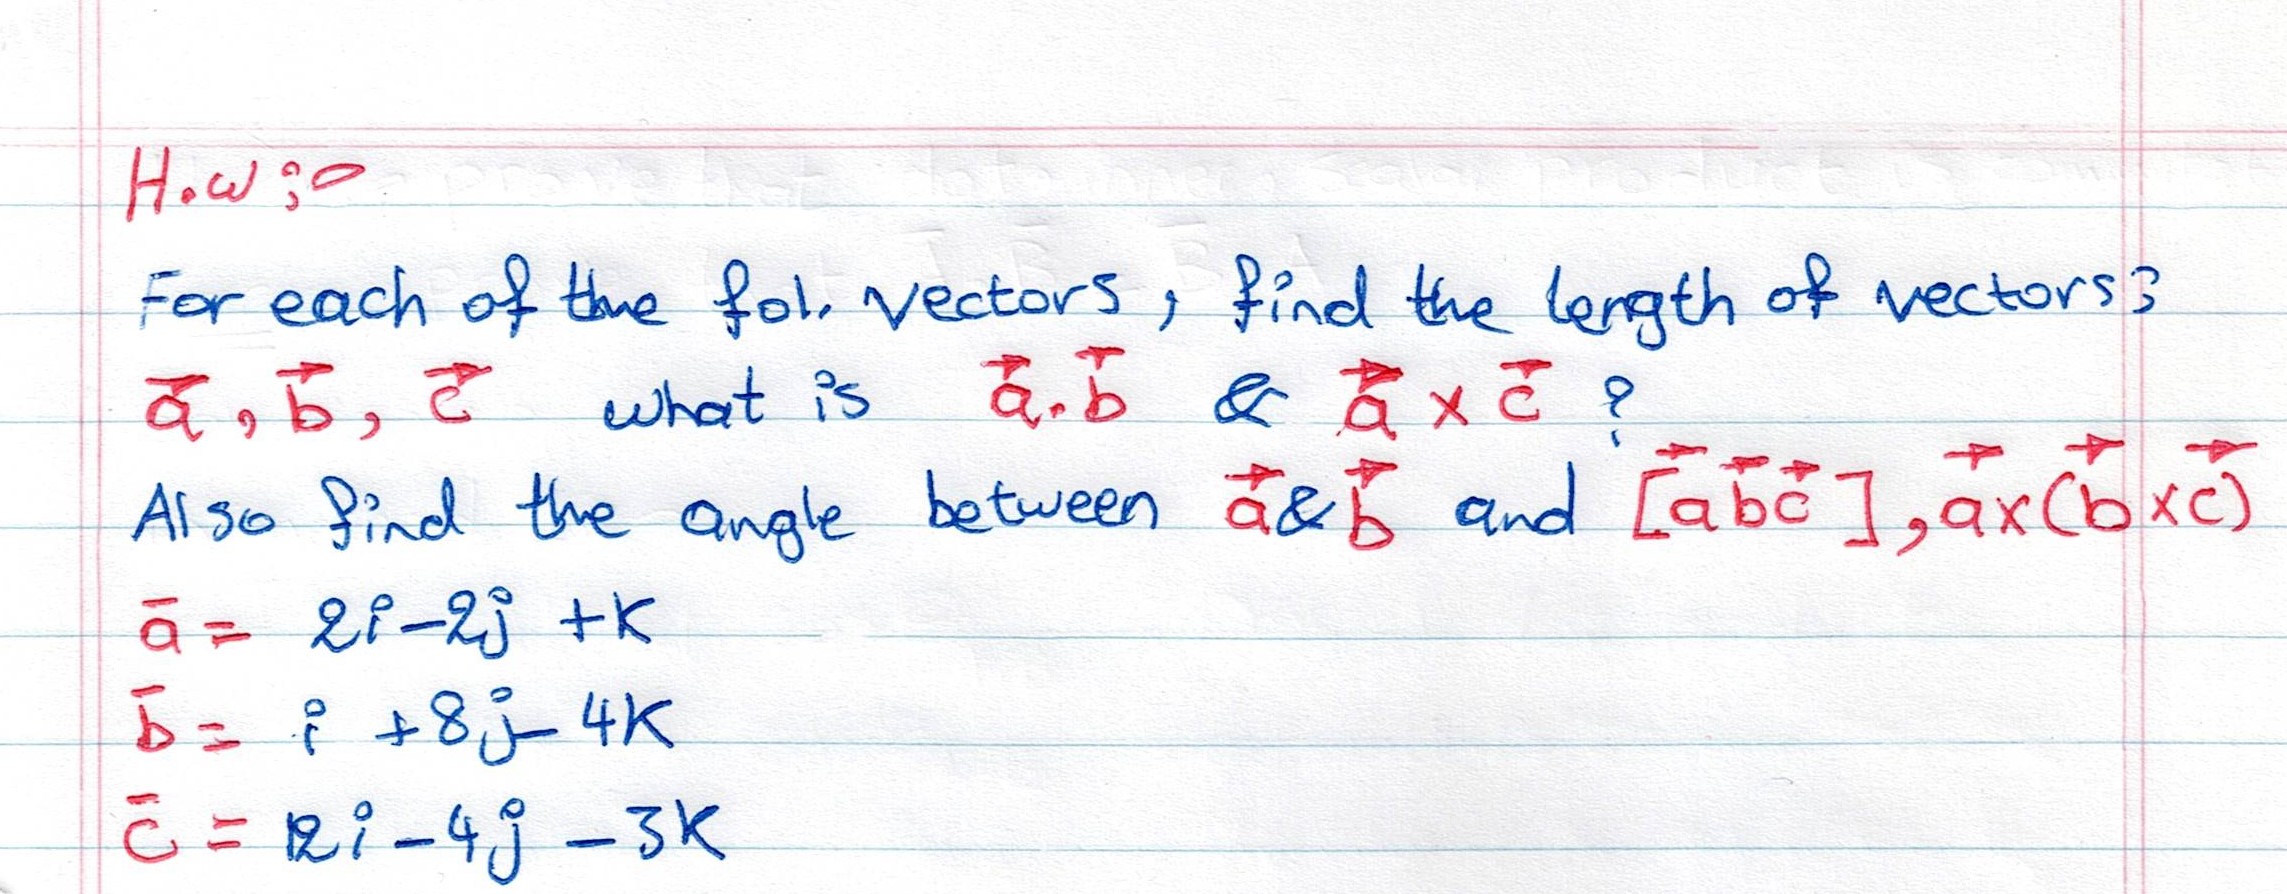 H.W:-
For each of the fol. vectors, find the length of vectors;
a⃗, b⃗, c⃗ what is a⃗.b⃗ & a⃗ x c⃗ ?
Also find the angle between a⃗&b⃗ and [a⃗b⃗c⃗], a⃗x(b⃗xc⃗)
a̅= 2i-2j +k
b̅= i +8j-4k
c̅= 12i-4j-3k